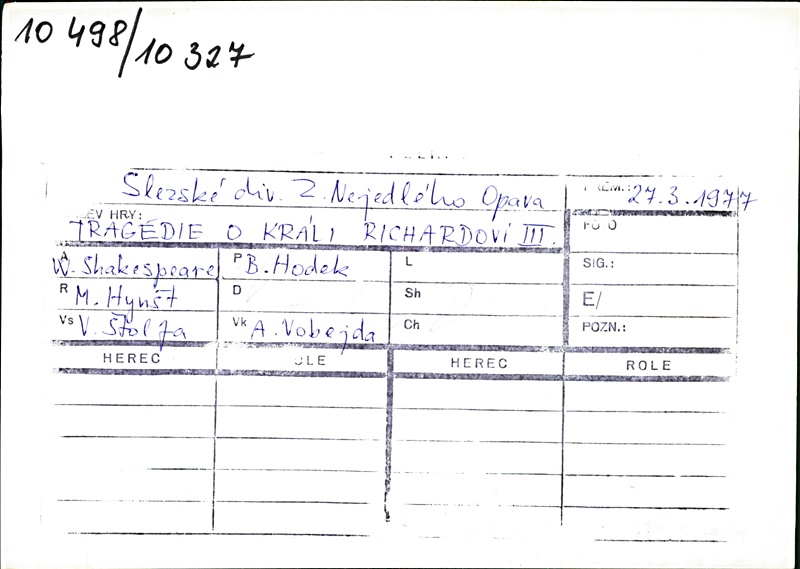 10 498/10 327
Slezské div. Z. Nejedlého Opava
PREM.: 27.3.1977
EV HRY:
TRAGÉDIE O KRÁLI RICHARDOVI III.
FOTO
A W. Shakespeare P B. Hodek L SIG.:
R M. Hynšt D Sh E/
Vs V. Štolfa Vk A. Vobejda Ch POZN.:
HEREC OLE HEREC ROLE